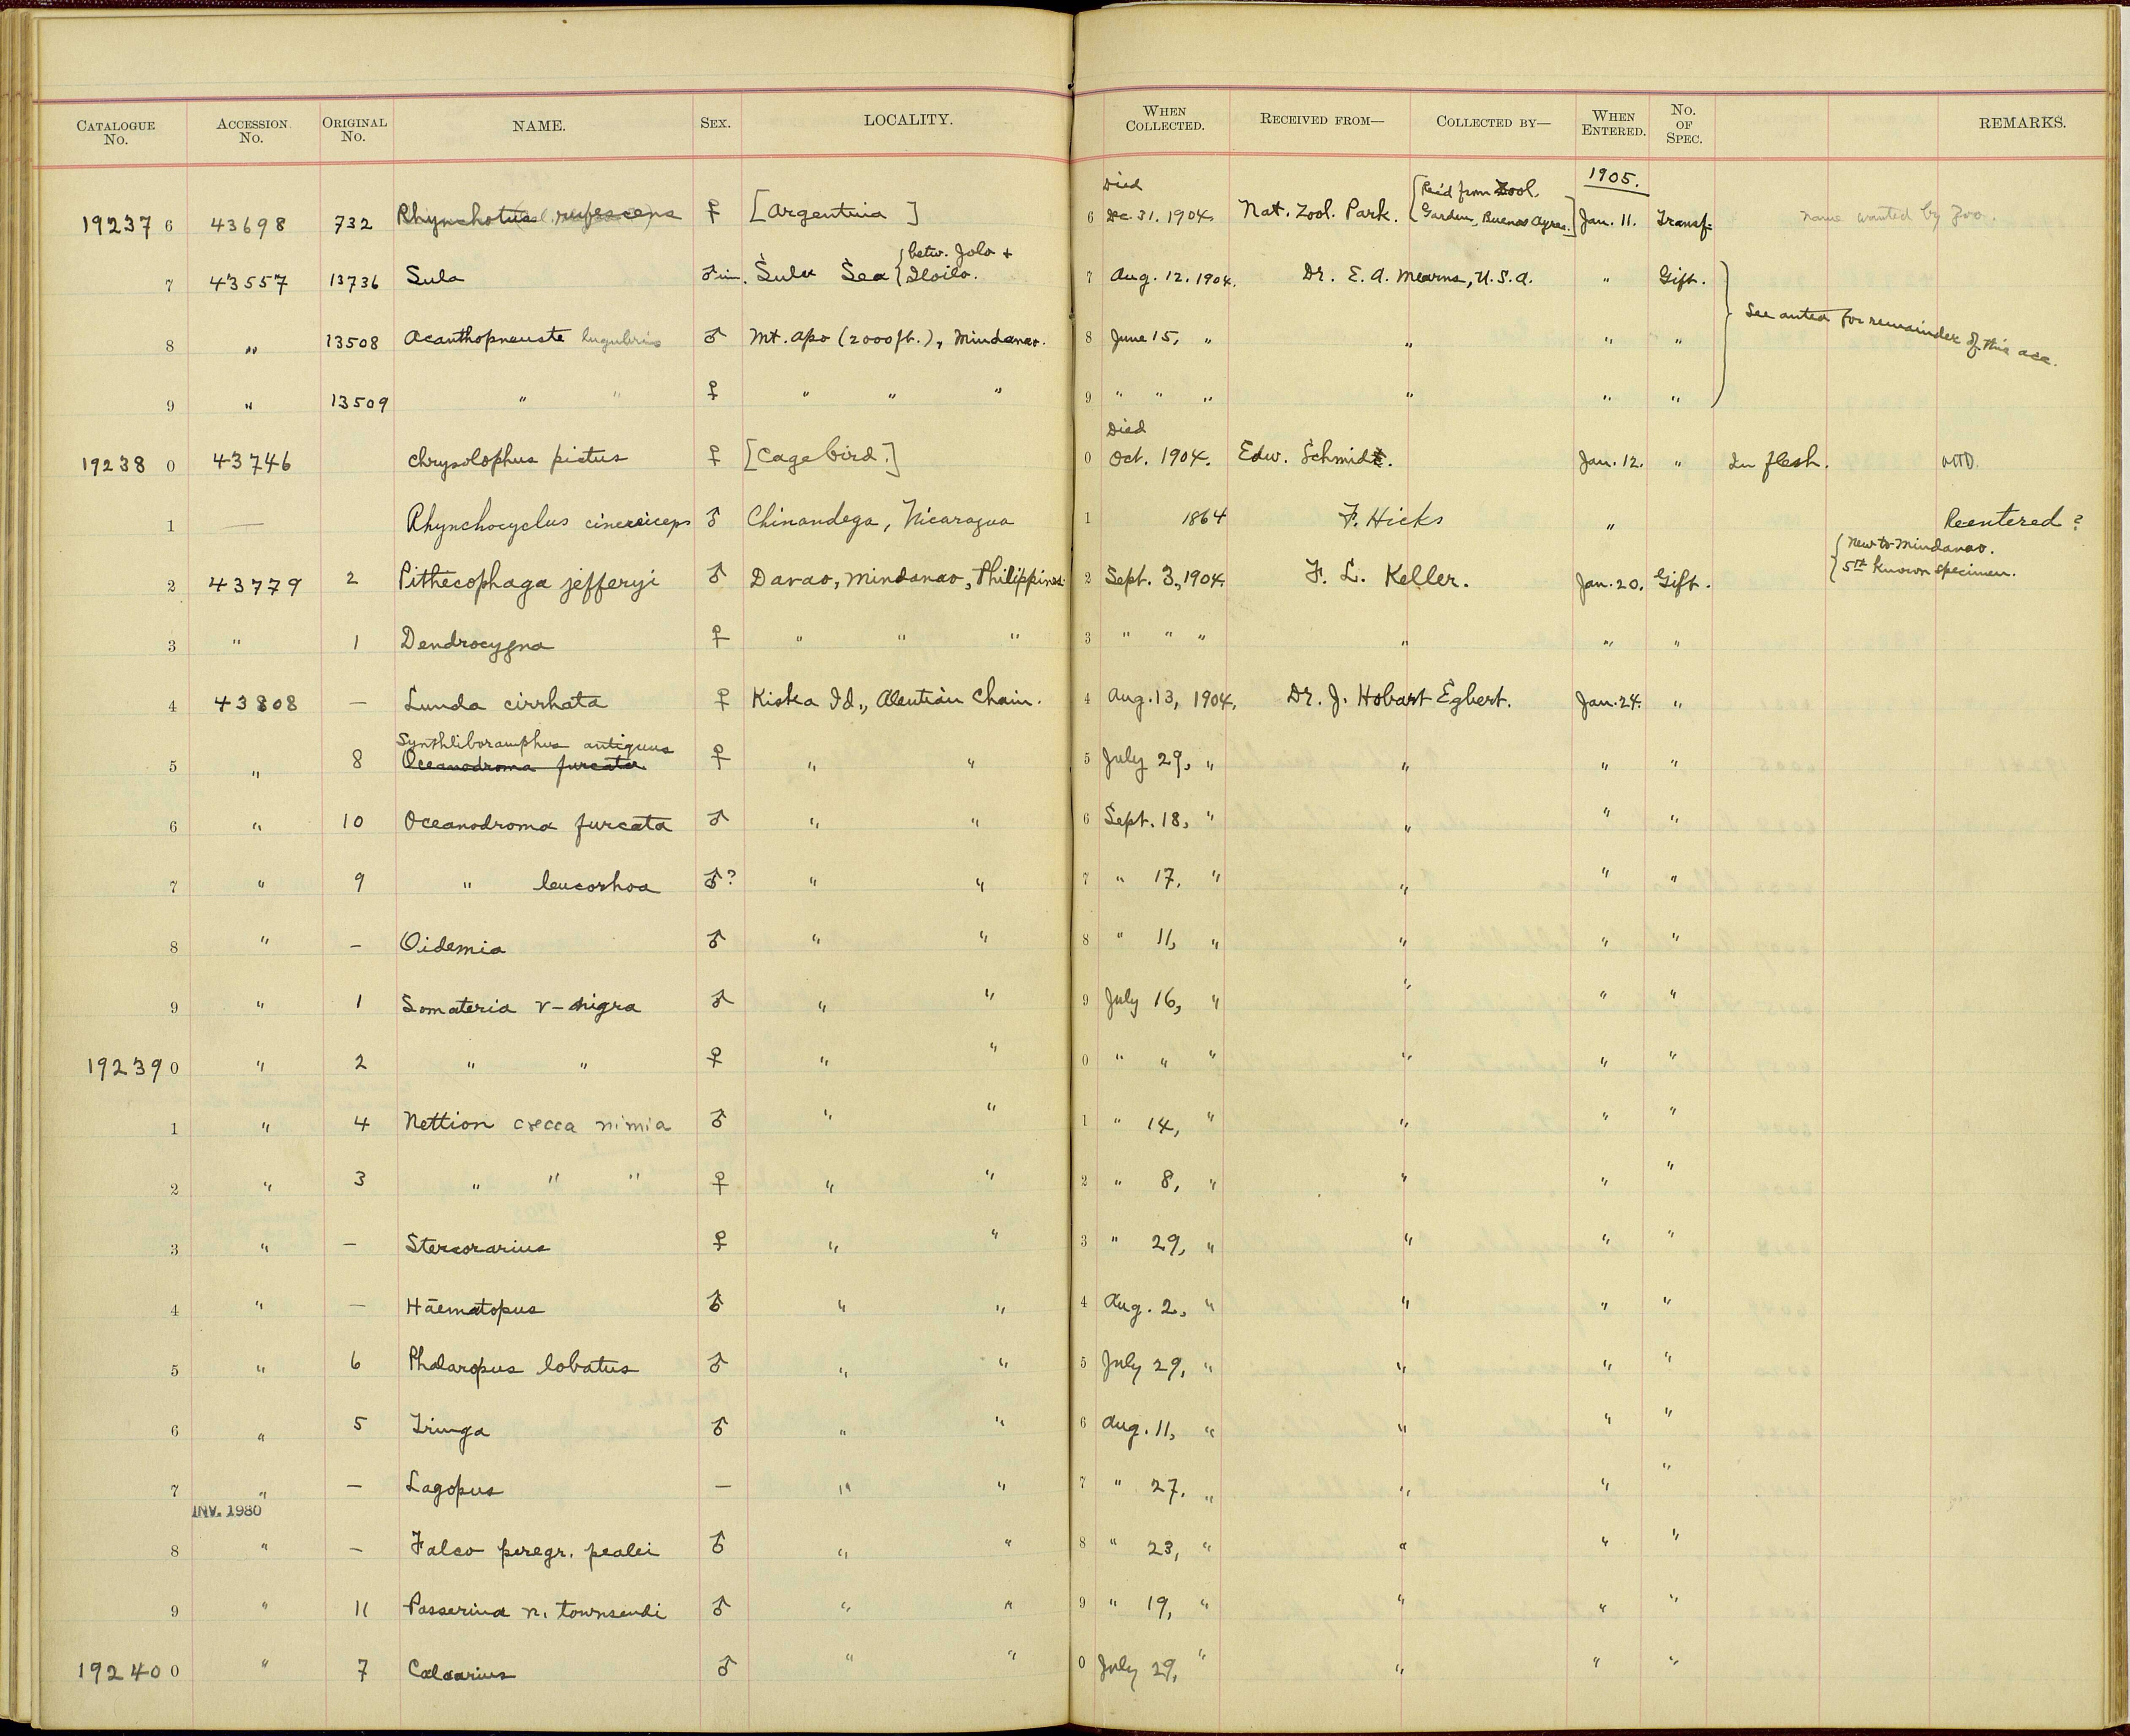 CATALOGUE No. ACCESSION No. ORIGINAL No. NAME. SEX. LOCALITY. WHEN COLLECTED. RECEIVED FROM— COLLECTED BY— WHEN ENTERED. No. OF SPEC. REMARKS.
1905.
19237 6 43698 732 Rhynchotus rufescens ♀ [Argentina] 6 Died Dec. 31. 1904. Nat. Zool. Park. [Rec'd from Zool. Garden, Buenos Ayres.] Jan. 11. Transf. name wanted by Zoo.
7 43557 13736 Sula ♂ im. Sulu Sea {betw. Jolo + Iloilo. 7 Aug. 12. 1904. Dr. E. A. Mearns, U.S.A. " Gift. } See antea for remainder of this acc.
8 " 13508 Acanthopneuste lugubris ♂ Mt. Apo (2000 ft.), Mindanao. 8 June 15, " " " "
9 " 13509 " " ♀ " " " 9 " " " " " "
19238 0 43746 Chrysolophus pictus ♀ [Cage bird.] 0 Died Oct. 1904. Edw. Schmidt. Jan. 12. " In flesh. MTD.
1 — Rhynchocyclus cinereiceps ♂ Chinandega, Nicaragua 1 1864 F. Hicks " Re-entered?
2 43779 2 Pithecophaga jefferyi ♂ Davao, Mindanao, Philippines. 2 Sept. 3, 1904. F. L. Keller. Jan. 20. Gift. {New to Mindanao. 5th known specimen.
3 " 1 Dendrocygna ♀ " " " 3 " " " " " "
4 43808 — Lunda cirrhata ♀ Kiska Id., Aleutian Chain. 4 Aug. 13, 1904. Dr. J. Hobart Egbert. Jan. 24. "
Synthliboramphus antiquus
5 " 8 Oceanodroma furcata. ♀ " " 5 July 29, " " " "
6 " 10 Oceanodroma furcata ♂ " " 6 Sept. 18, " " " "
7 " 9 " leucorhoa ♂? " " 7 " 17, " " " "
8 " — Oidemia ♂ " " 8 " 11, " " " "
9 " 1 Somateria v-nigra ♂ " " 9 July 16, " " " "
19239 0 " 2 " " ♀ " " 0 " " " " " "
1 " 4 Nettion crecca nimia ♂ " " 1 " 14, " " " "
2 " 3 " " " ♀ " " 2 " 8, " " " "
3 " — Stercorarius ♀ " " 3 " 29, " " " "
4 " — Haematopus ♂ " " 4 Aug. 2, " " " "
5 " 6 Phalaropus lobatus ♂ " " 5 July 29, " " " "
6 " 5 Tringa ♂ " " 6 Aug. 11, " " " "
7 " — Lagopus — " " 7 " 27. " " " "
INV. 1980
8 " — Falco peregr. pealei ♂ " " 8 " 23, " " " "
9 " 11 Passerina n. townsendi ♂ " " 9 " 19, " " " "
19240 0 " 7 Calcarius ♂ " " 0 July 29, " " " "